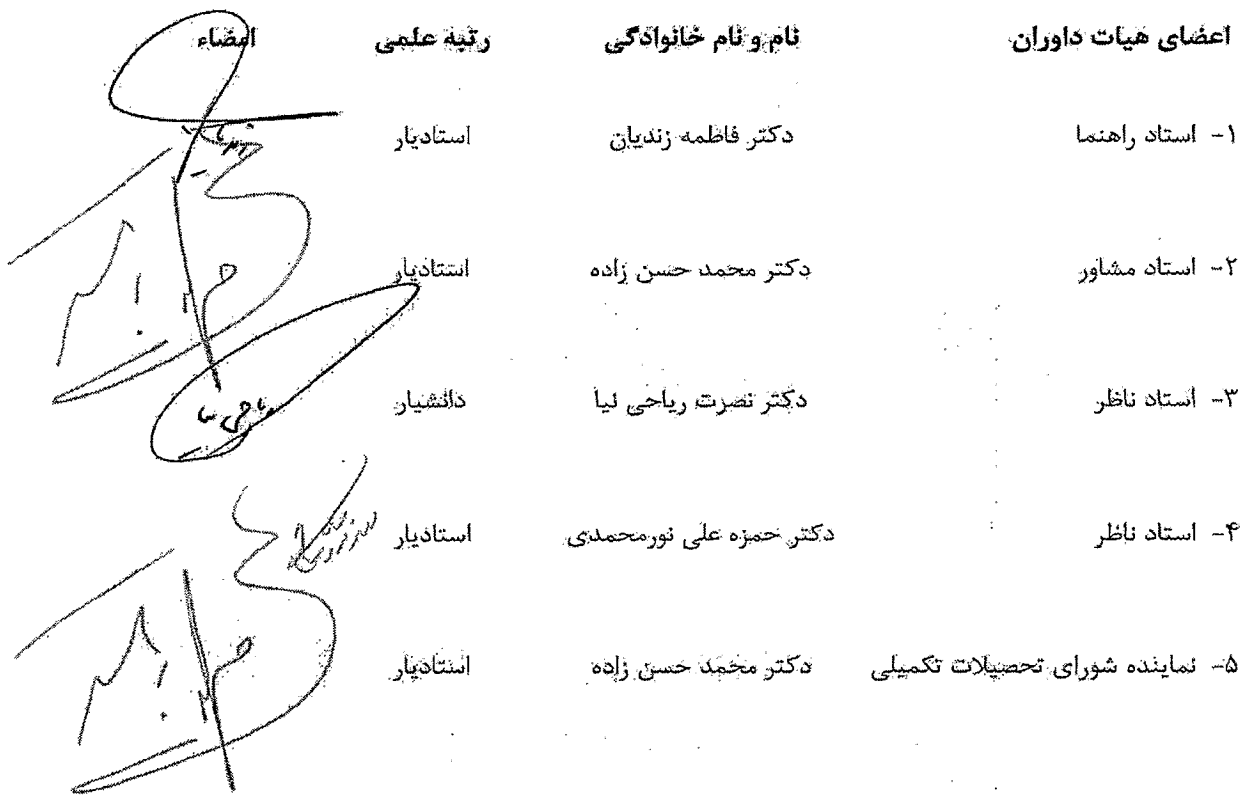 اعضای هیات داوران نام و نام خانوادگی رتبه علمی امضاء
۱- استاد راهنما دکتر فاطمه زندیان استادیار
۲- استاد مشاور دکتر محمد حسن زاده استادیار
۳- استاد ناظر دکتر نصرت ریاحی نیا دانشیار
۴- استاد ناظر دکتر حمزه علی نورمحمدی استادیار
۵- نماینده شورای تحصیلات تکمیلی دکتر محمد حسن زاده استادیار